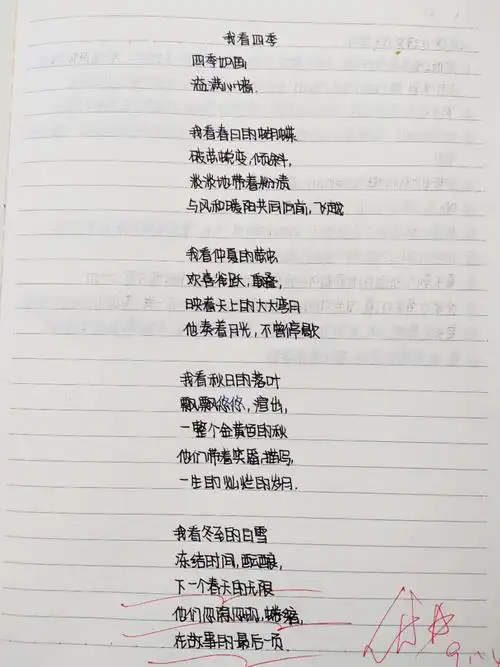 我看四季
四季如画
溢满心墙.
我看春日的蝴蝶
破茧蜕变,倾斜,
淡淡地带着粉渍
与风和暖阳共同向前,飞越
我看仲夏的萤虫
欢喜雀跃,重叠,
映着天上的大大弯月
他奏着月光,不曾停歇
我看秋日的落叶
飘飘悠悠,渲出,
一整个金黄色的秋
他们带着笑靥,描写,
一生的灿烂的岁月.
我看冬至的白雪
冻结时间,酝酿,
下一个春天的无限
他们忽隐忽现,蜷缩,
在故事的最后一页.